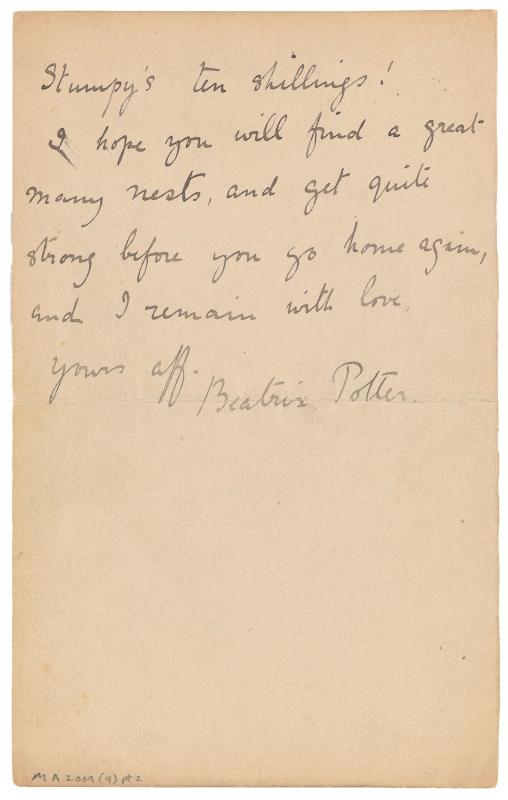 Stumpy's ten shillings!
I hope you will find a great
many nests, and get quite
strong before you go home again,
and I remain with love,
yours aff.
Beatrix Potter.
MA 2009(4) pt 2